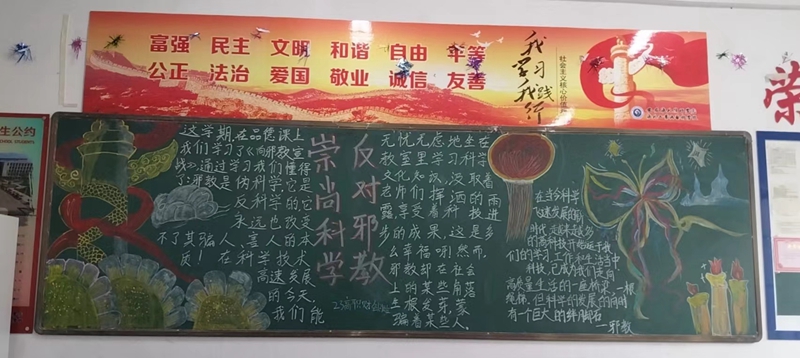 富强 民主 文明 和谐 自由 平等
公正 法治 爱国 敬业 诚信 友善
我学习
我践行
社会主义核心价值观
荣
生公约
这学期,在品德课上
我们学习了《向邪教宣
战》通过学习我们懂得
了:邪教是伪科学,它是
反科学的它
永远也改变
不了其骗人、害人的本
质!在科学技术
高速发展
的今天,
我们能
崇尚科学
反对邪教
无忧无虑地坐在
教室里学习科学
文化知识,汲取着
老师们挥洒的雨
露,享受着科技进
步的成果,这是多
么幸福啊!然而,
邪教却在社会
上的某些角落
生根发芽,蒙
骗着某些人.
在当今科学
飞速发展的
时代,越来越多
的高科技开始运于我
们的学习、工作和生活中
科技,已成为我们走向
高质量生活的一座桥梁、一根
绳梯,但科学的发展的同时
有一个巨大的绊脚石
—邪教